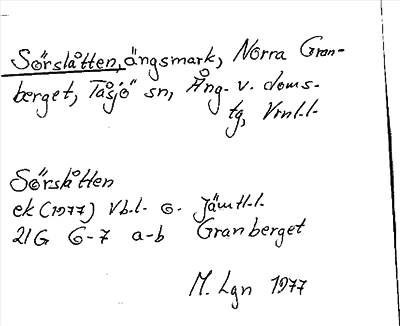 Sörslåtten, ängsmark, Norra Gran-
berget, Tåsjö sn, Ång. v. doms-
tg, Vrnl.l.
Sörslåtten
ek (1977) Vb.l. o. Jämtl.l.
21G 6-7 a-b Granberget
M. Lgn 1977